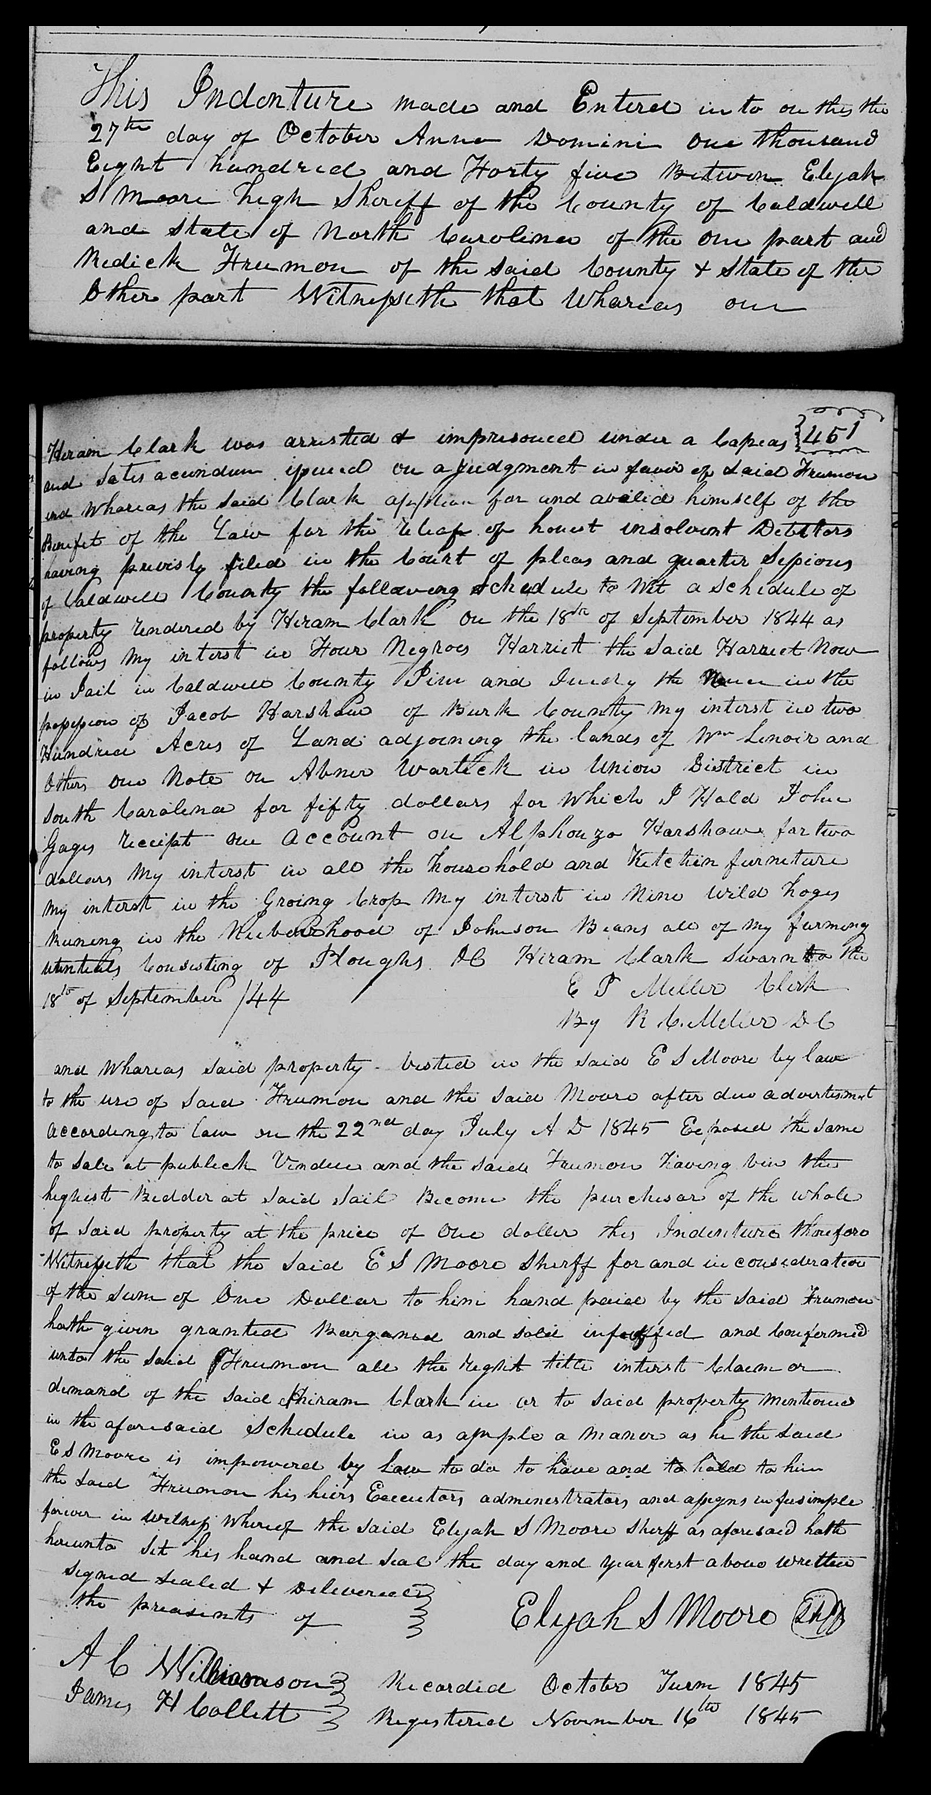 This Indenture made and Entered in to on this the
27th day of October Anno Domini One thousand
Eight hundred and Forty five Betwen Elijah
S Moore high Sheriff of the County of Caldwell
and State of North Carolina of the one part and
Redick Frumon of the said County & State of the
Other part Witnesseth that Whareas one
451
Hiram Clark was arristed & imprisoned under a Capeas
and Satis acundum issued on a Judgment in favor of said Frumon
and Whareas the said Clark for and avalid himself of the
Benifit of the Law for the of honest insolvent Debtors
having filed in the Court of pleas and quarter Sessions
of Caldwell County the following schedule to Wit a schedule of
property rendered by Hiram Clark on the 18th of September 1844 as
follows My interst in Four Negroes Harriet the said Harriet Now
in Jail in Caldwell County and the in the
possession of Jacob Harshaw of Burk County My interst in two
Hundred Acres of Land adjoining the lands of Wm Lenoir and
Others one Note on Abner Warlick in Union District in
South Carolina for fifty dollars for Which I Hold John
Gages receipt one account on Alphonzo Harshaw for two
dollars My interst in all the household and Kitchen furneture
My interst in the Groing Crop My interst in Nine wild hogs
Runing in the of Johnson Beans all of My farming
utentials Consisting of Ploughs &C Hiram Clark Swarn to the
18th of September /44
E P Miller Clerk
By R C. Miller D C
and Whareas said property Visted in the said E S Moore by law
to the use of said Frumon and the said Moore after due advertisment
according to law on the 22nd day July A D 1845 Exposed the same
to Sale at publick Vendue and the said Frumon having bin the
highest Bidder at said Sail Become the purchisar of the whole
of said property at the price of One doller this Indenture tharefore
Witnesseth that the said E S Moore Sherff for and in consideration
of the sum of One Dollar to him hand paid by the said Frumon
hath givin granted Barganed and sold infeoffed and Confermed
unto the said Frumon all the reght title interst Claim or
demand of the said Hiram Clark in or to said property Mentioned
in the aforesaid Schedule in as ample a Manor as he the said
E S Moore is impowered by Law to do to have and to hold to him
the said Frumon his hiers Executors administrators and assigns in fusimple
forever in witness Whereof the said Elijah S Moore Sherff as aforesaid hath
hereunto Set his hand and Seal the day and year first above written
Signed Sealed & Delivered
the presents of
Elijah S Moore
A C Williamson
James H Collett
Recorded October Turm 1845
Registered November 16th 1845